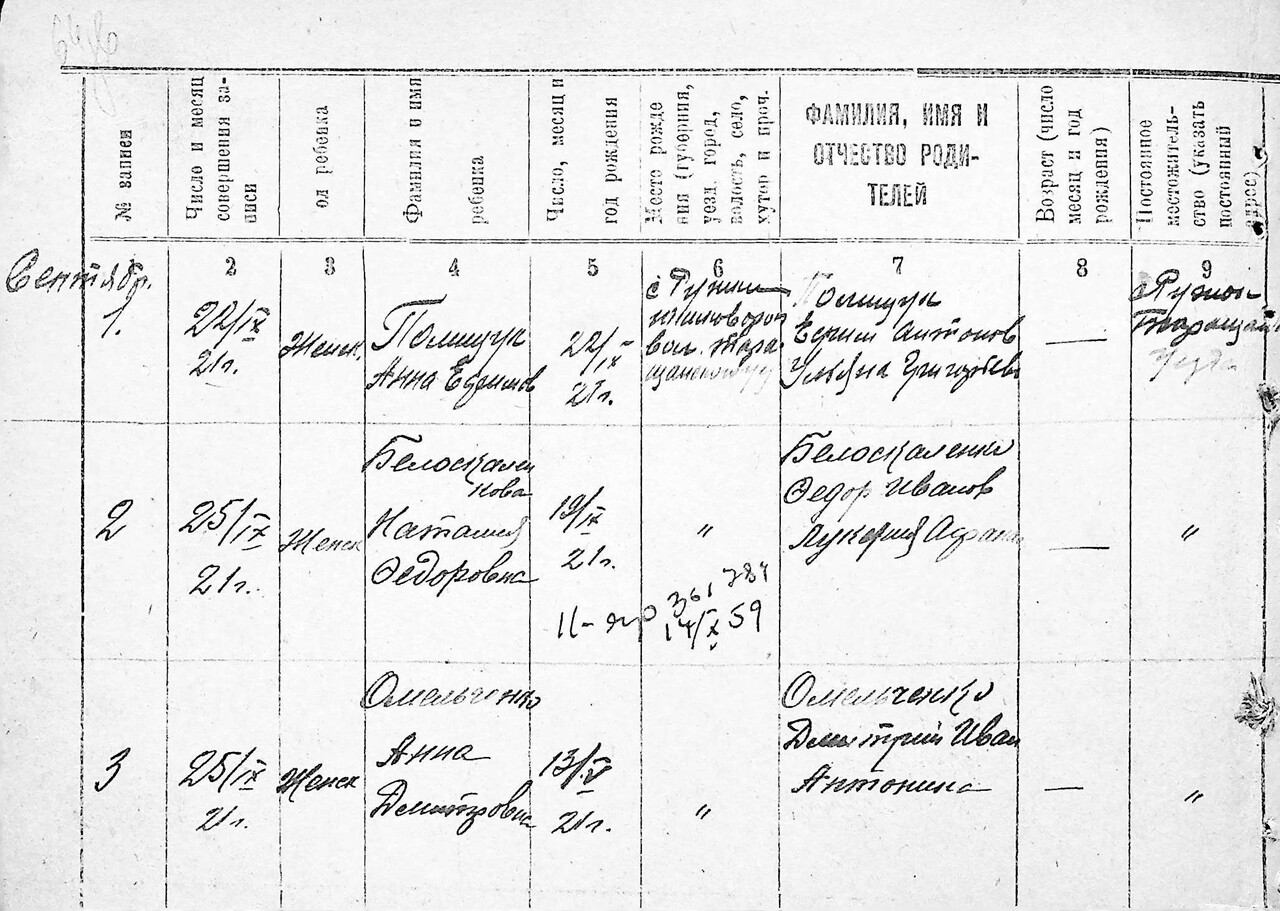 № записи
Число и месяц
совершения за-
писи
ол ребенка
Фамилия и имя
ребенка
Число, месяц и
год рождения
Место рожде
ния (губерния,
уезд. город,
волость, село,
хутор и проч.
ФАМИЛИЯ, ИМЯ И
ОТЧЕСТВО РОДИ-
ТЕЛЕЙ
Возраст (число
месяц и год
рождения)
Постоянное
местожитель-
ство (указать
постоянный
адрес)
2 3 4 5 6 7 8 9
Сентябр.
1.
22/IX
21г.
Женск.
Полищук
Анна Ефимов
22/IX
21г.
с
вол. Тара
щанского у
Полищук
Ефим Антонов
Ульяна Григорьев
—
с
Таращан
2
25/IX
21г.
Женск
Белоскален
кова
Наталия
Федоровна
19/IX
21г.
"
Белоскаленко
Федор Иванов
Лукерия
—
"
14/X 59
3
25/IX
21г.
Женск
Омельченко
Анна
Дмитровна
13/V
21г.
"
Омельченко
Дмитрий Иван
Антонина
—
"